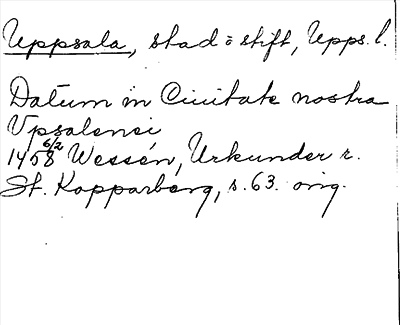 Uppsala, stad o stift, Upps. l.
Datum in Ciuitate nostra
Vpsalensi
1458 6/2 Wessén, Urkunder r.
St. Kopparberg, s. 63. orig.